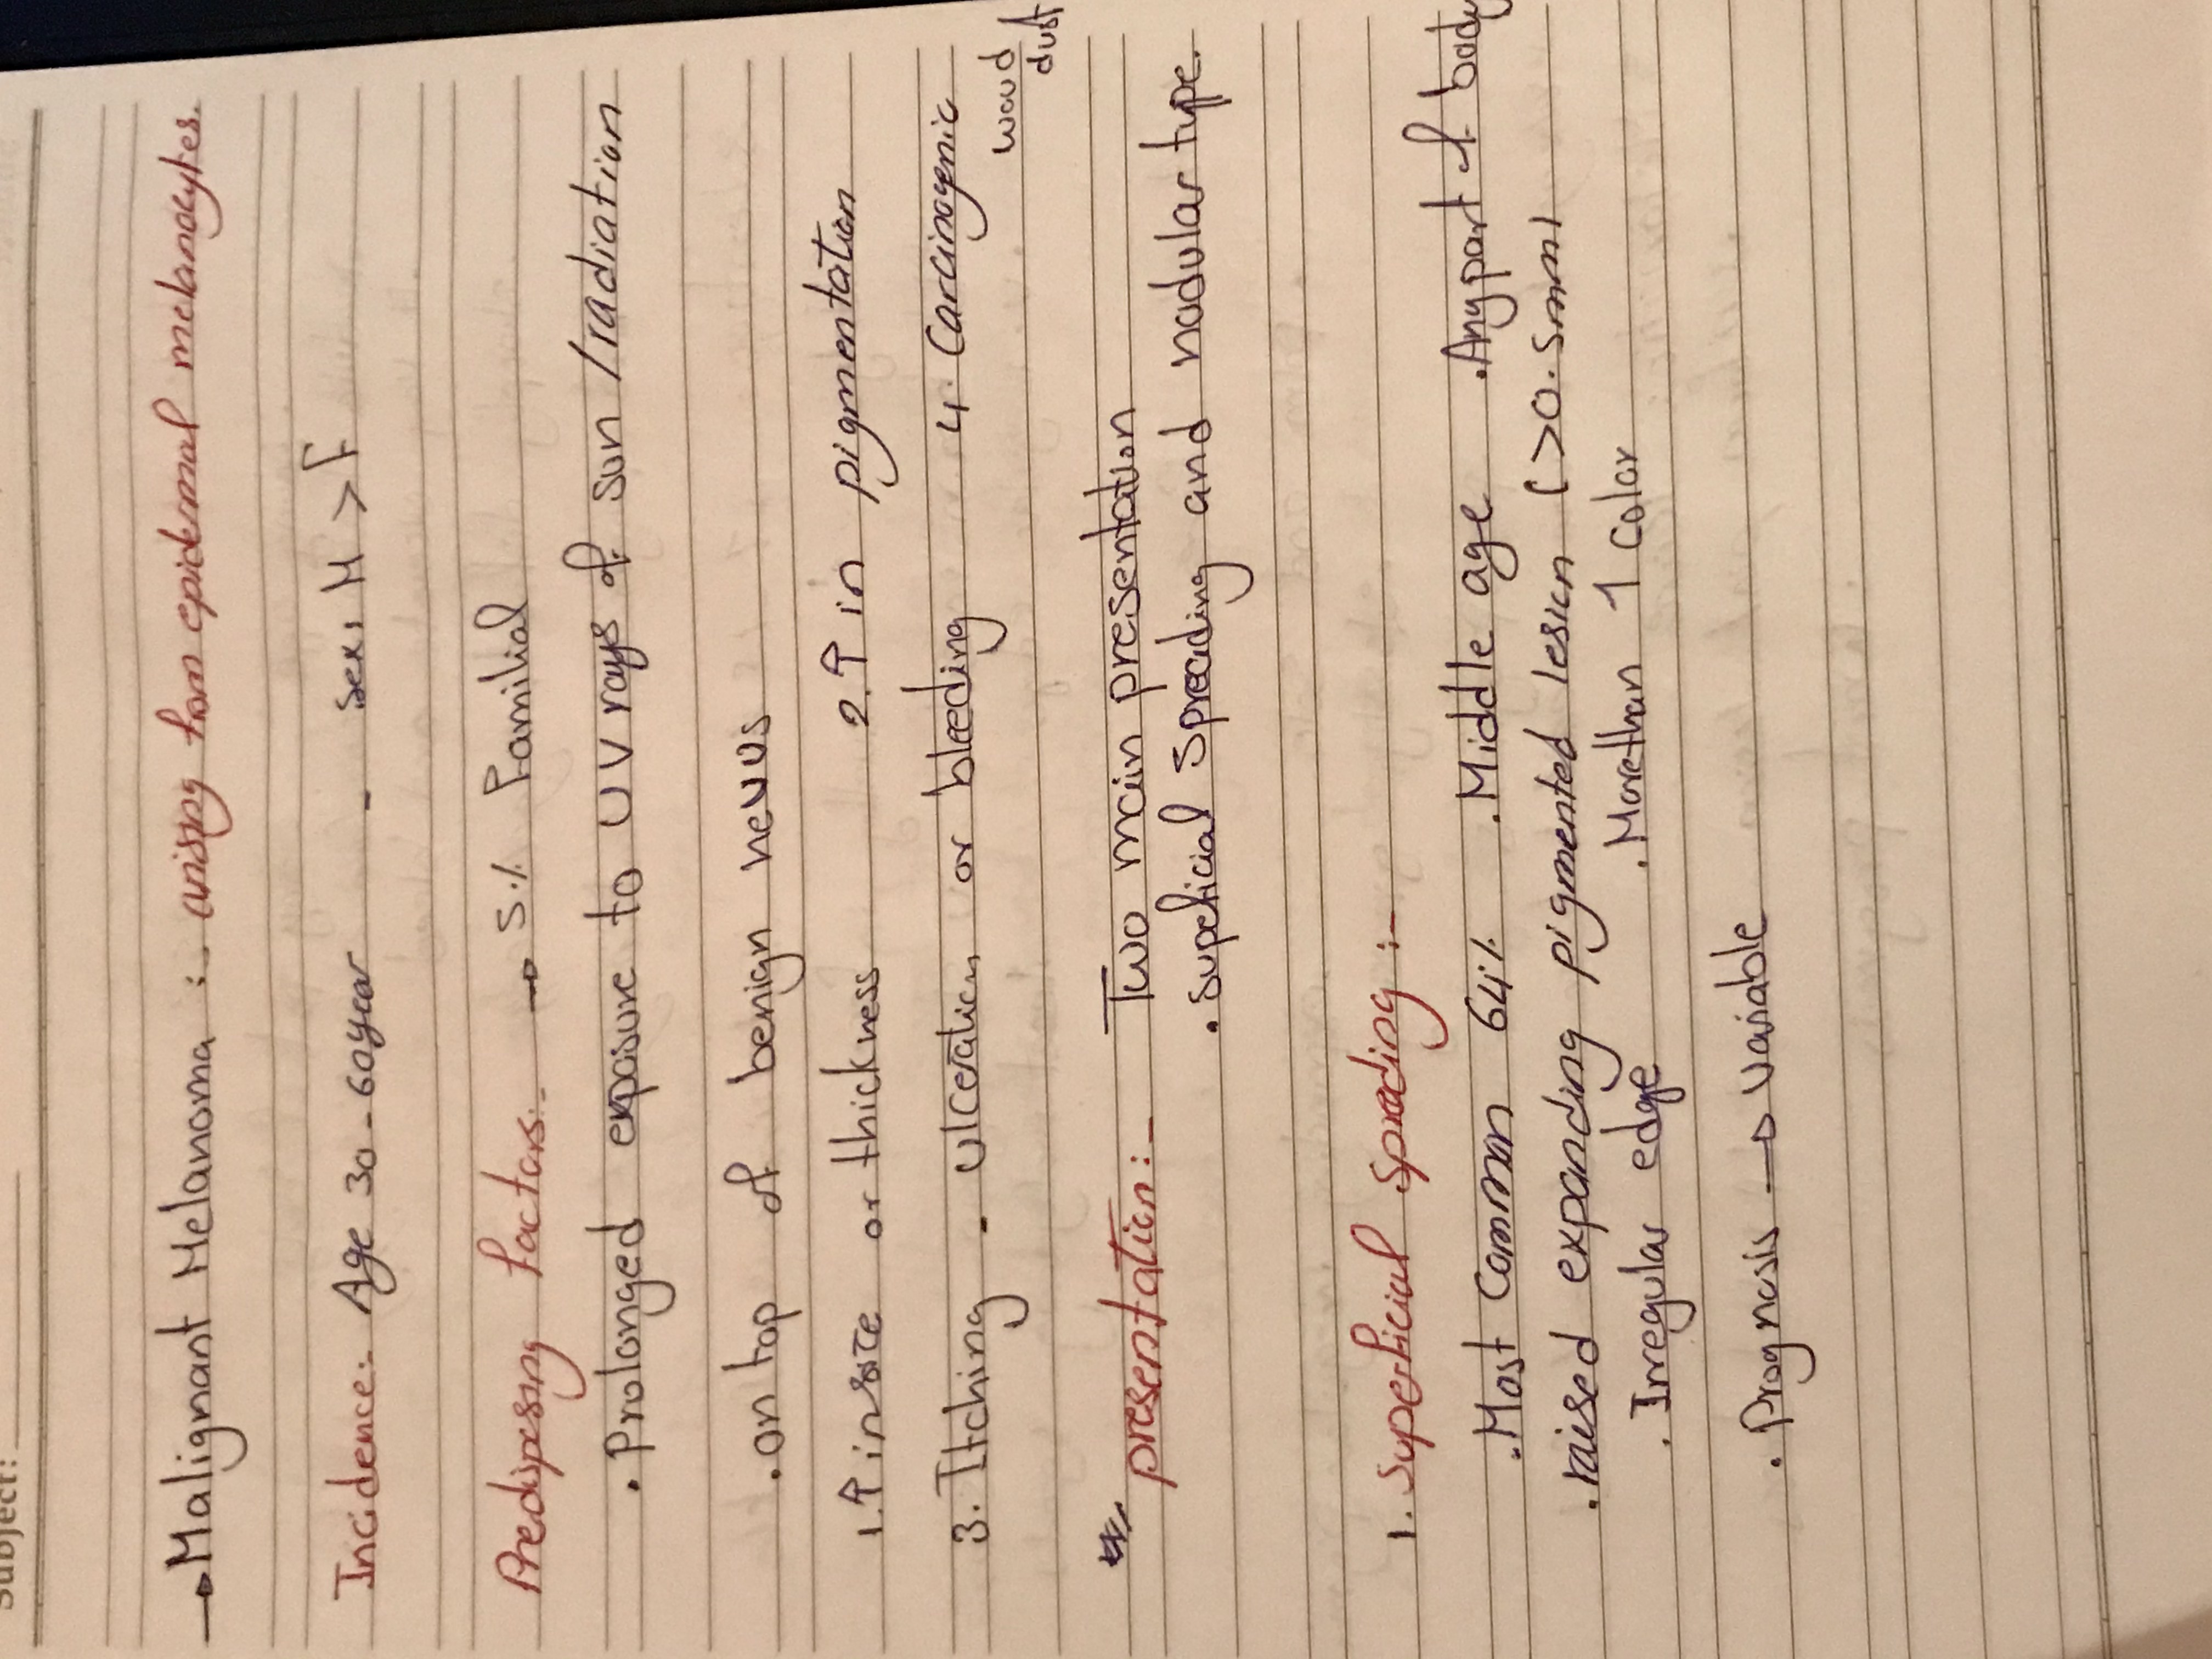 Subject:
→Malignant Melanoma :- arising from epidermal melanocytes.
Incidence:- Age 30-60year - Sex: M > F
Predisposing factors:- → 5% Familial
. Prolonged exposure to UV rays of sun /radiation
. on top of benign nevus
1.↑ in size or thickness 2.↑ in pigmentation
3. Itching - ulceration or bleeding 4. Carcinogenic
woud dust
presentation:- Two main presentation
. Supeficial spreading and nodular type.
1. Superficial spreading :-
. Most Common 64% . Middle age . Any part of body
. raised expanding pigmented lesion (>0.5mm)
. Irregular edge . More than 1 color
. Prognosis → variable